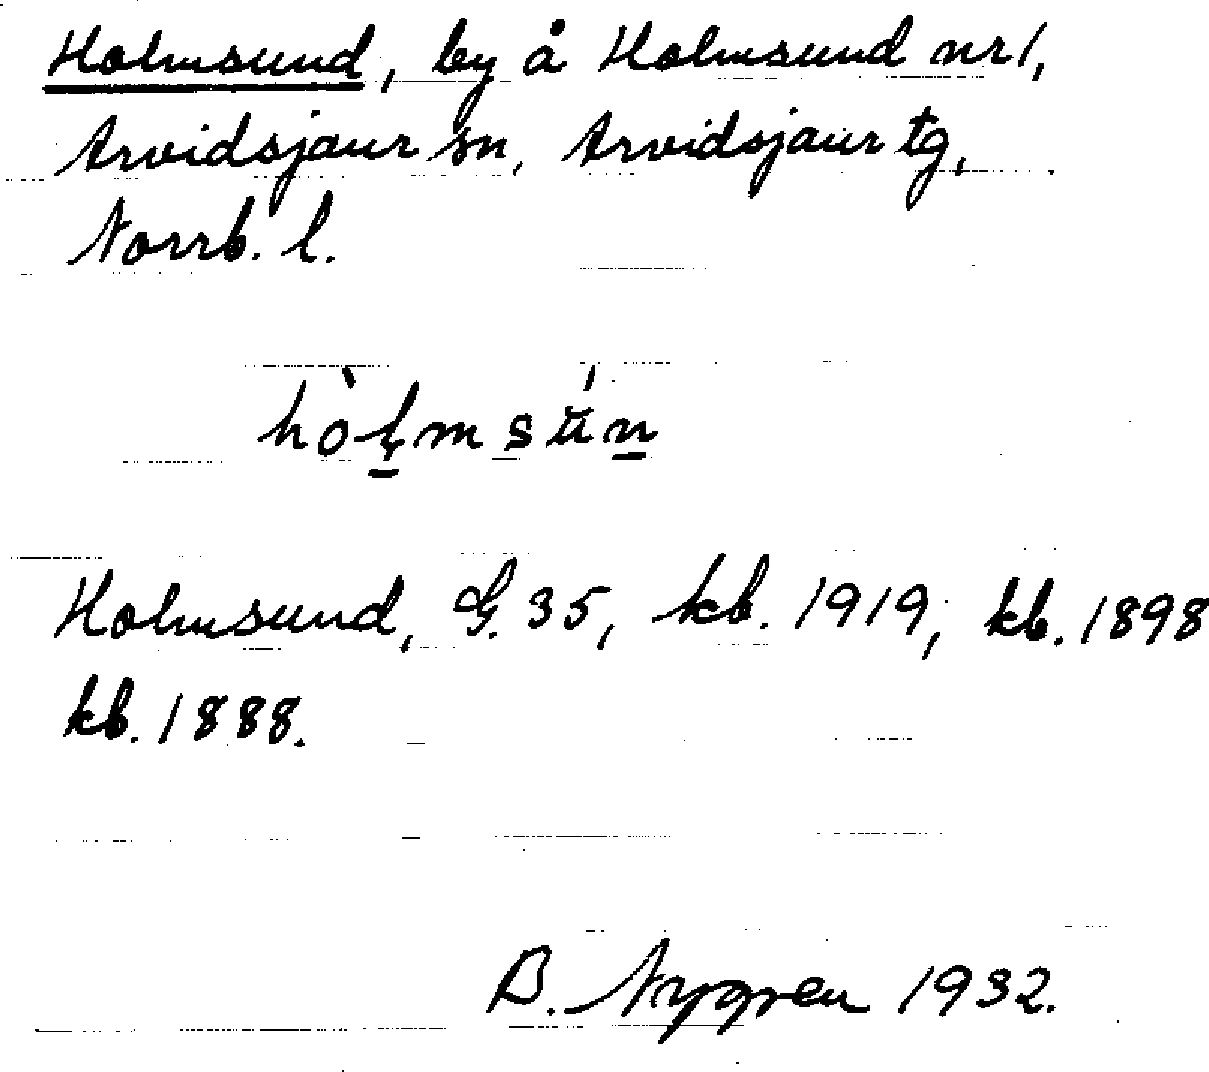 Holmsund, by å Holmsund nr 1,
Arvidsjaur sn, Arvidsjaur tg,
Norrb. l.
hòḷmsún
Holmsund, G. 35, kb. 1919, kb. 1898
kb. 1888.
B. Nygren 1932.